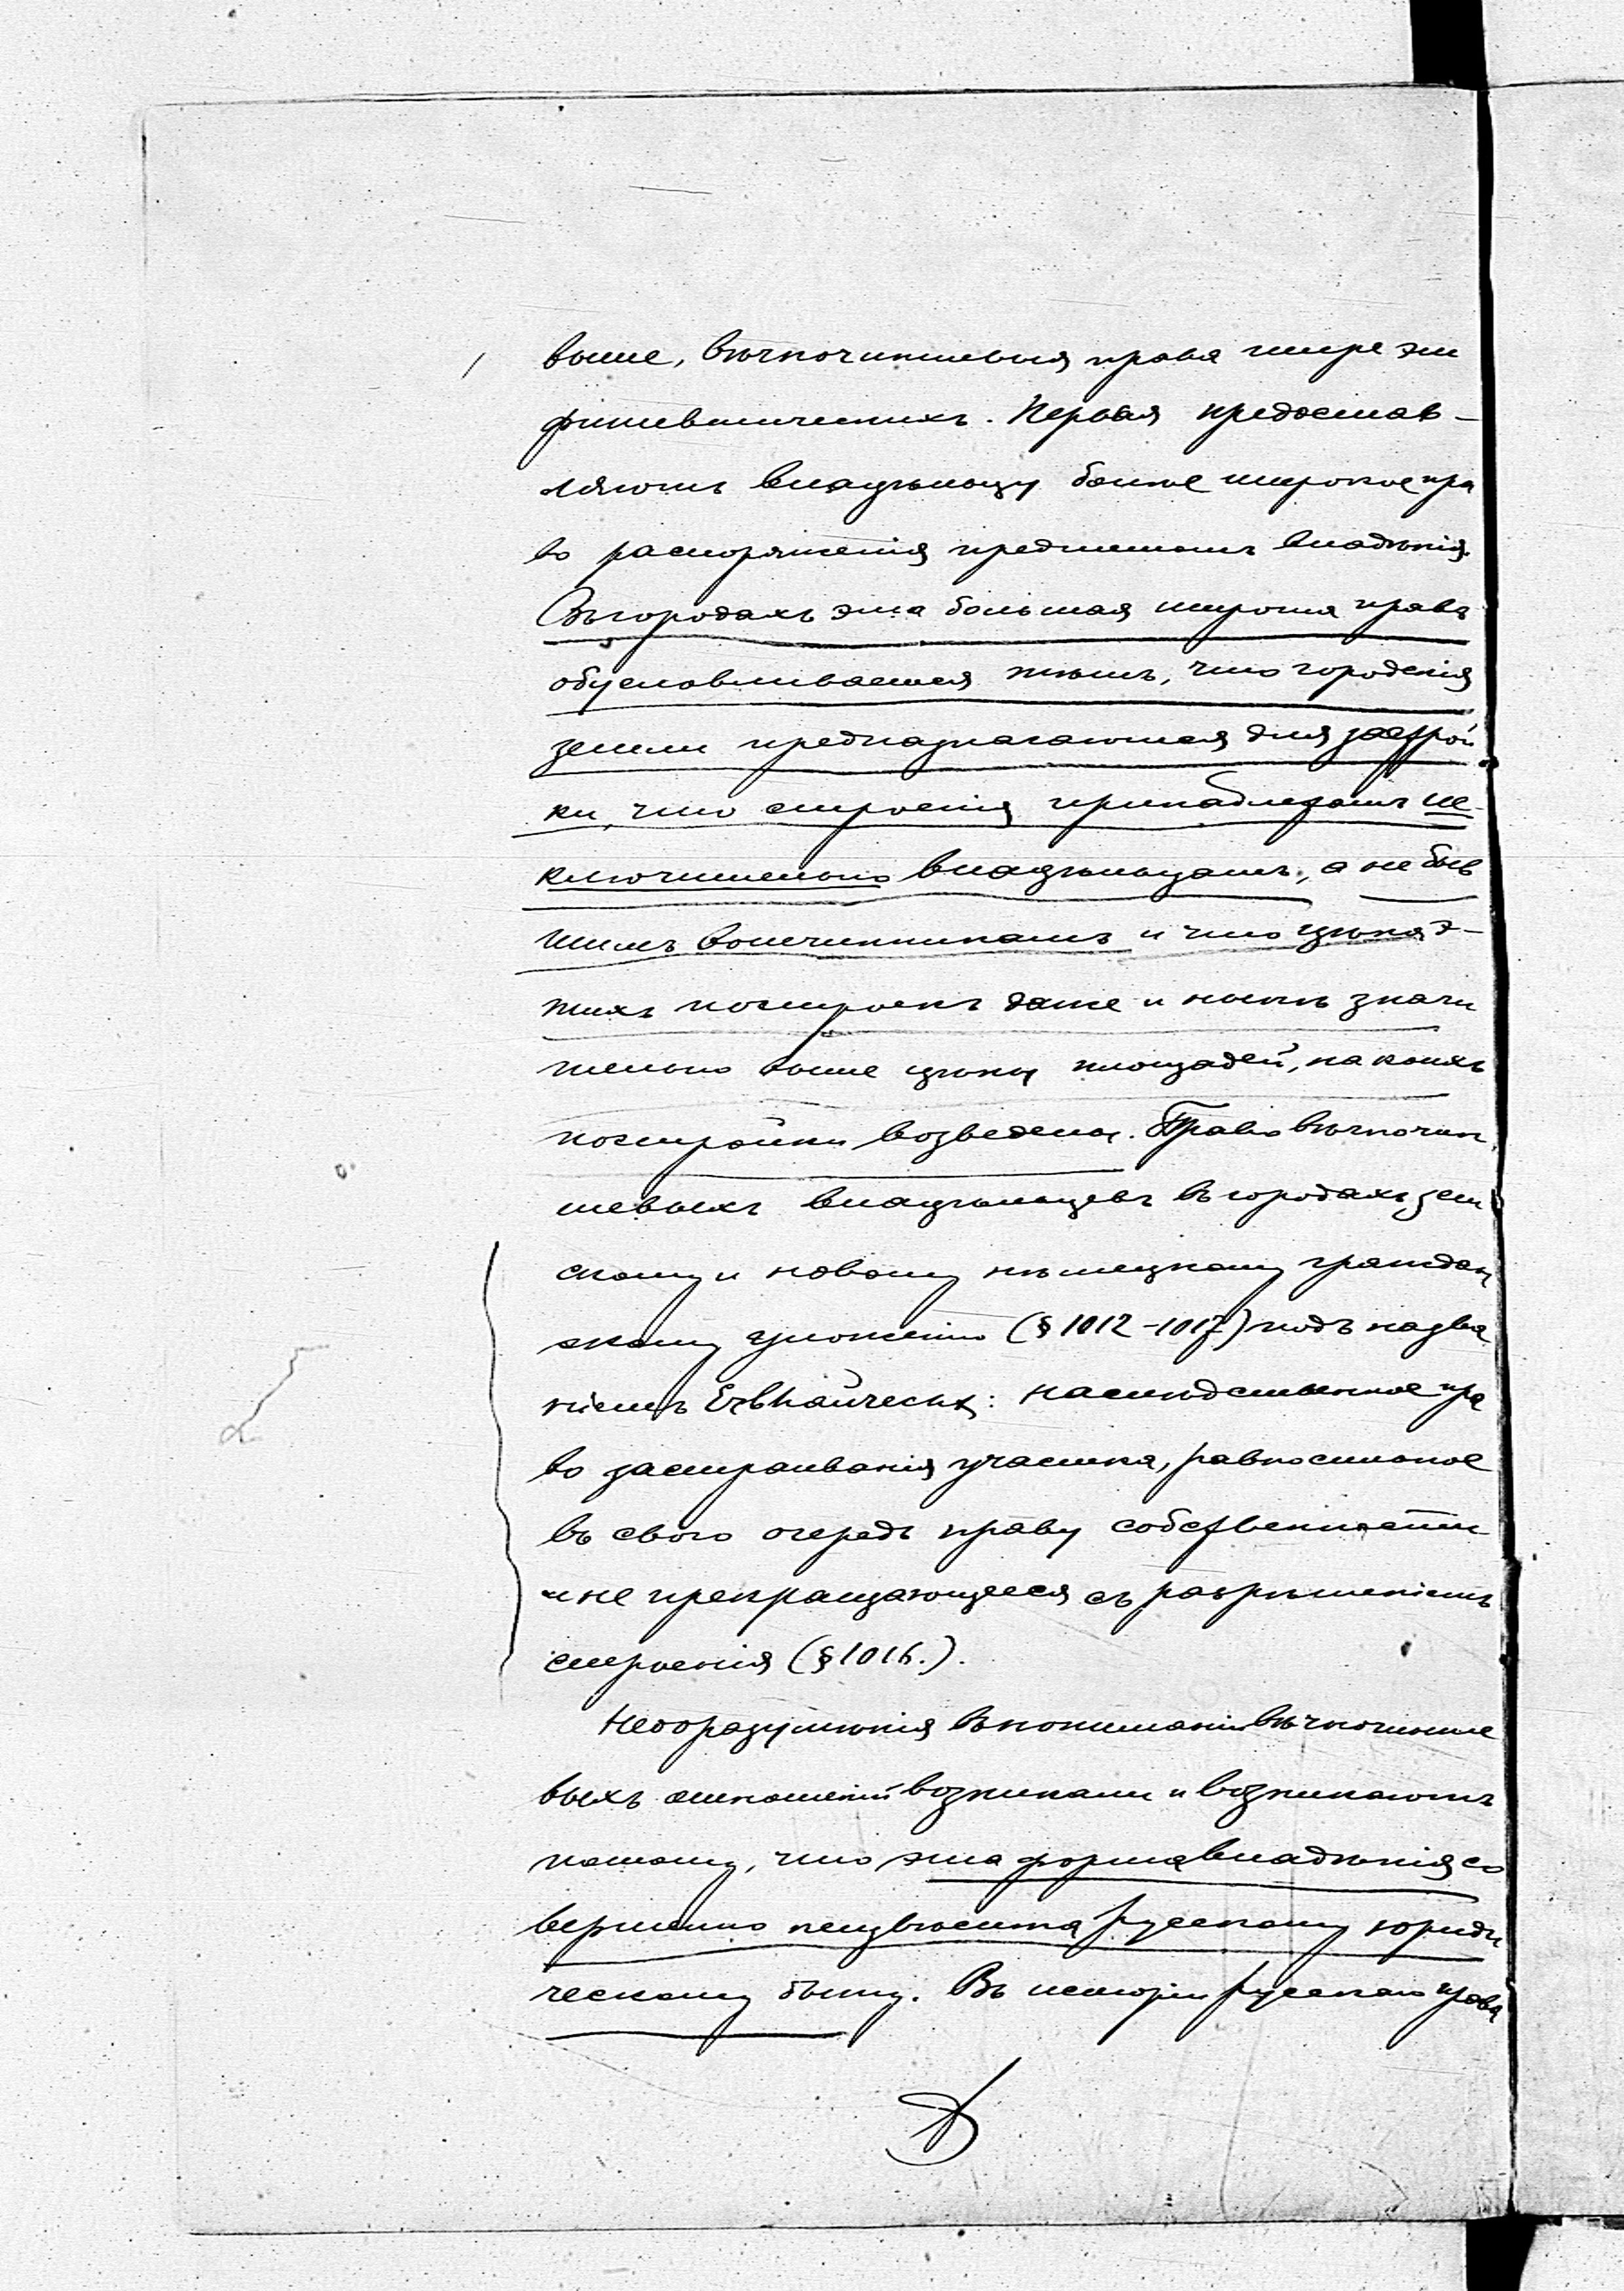 выше, вѣчночиншевыя права шире эм
фитевтическихъ. Первыя предостав-
ляютъ владѣльцу болѣе широкое пра
во распоряженія предметомъ владѣнія.
Въ городахъ эта большая широта права
обусловливается тѣмъ, что городскія
земли предназначаются для застрой
ки, что строенія принадлежатъ ис-
ключительно владѣльцамъ, а не быв
шимъ вотчинникамъ и что цѣна э-
тихъ построекъ даже и нынѣ значи
тельно выше цѣны площадей, на коихъ
постройки возведены. Право вѣчночин
шевыхъ владѣльцевъ въ городахъ
скому и новому нѣмецкому граждан
скому уложенію (§ 1012-1017) подъ назва
ніемъ: наслѣдственное пра
во застраиванія участка, равносильное
въ свою очередь праву собственности
и не прекращающееся съ разрушеніемъ
строенія (§ 1016.).
Недоразумѣнія въ пониманіи вѣчночинше
выхъ отношеній возникали и возникаютъ
потому, что эта форма владѣнія со
вершенно неизвѣстна русскому юриди
ческому быту. Въ исторіи русскаго права